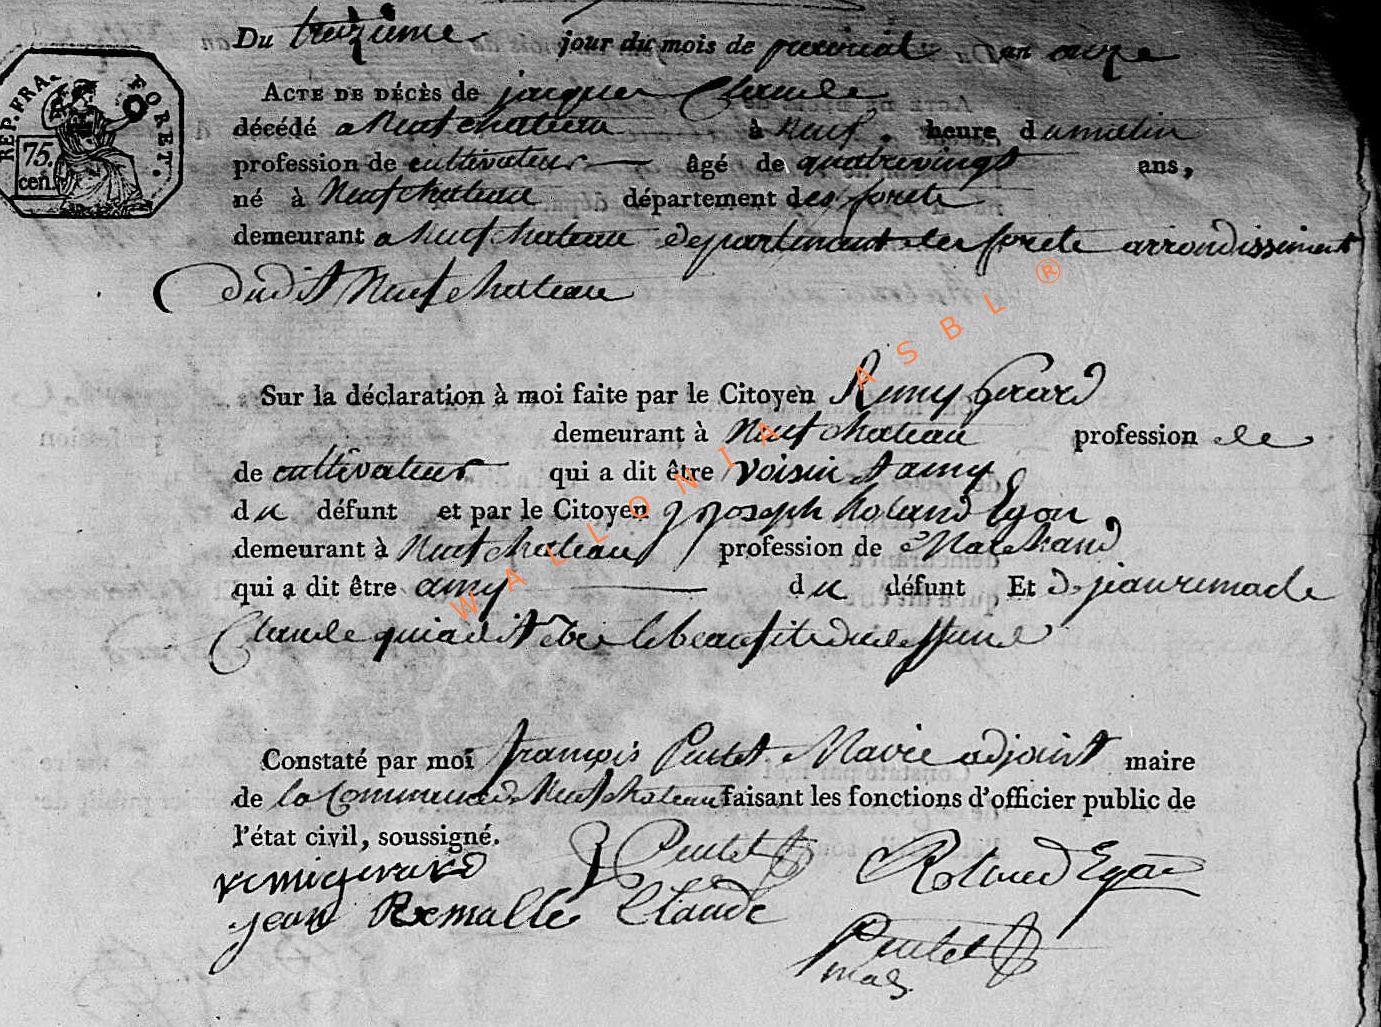 Du treizieme jour du mois de prairial an onze
ACTE DE DÉCÈS de jacques Claude
décédé a Neufchateau à neuf heure du matin
profession de cultivateur âgé de quatrevingt ans,
né à Neufchateau département des forets
demeurant a Neufchateau departement des forets arrondissement
dudit Neufchateau
Sur la déclaration à moi faite par le Citoyen Remy Gerard
demeurant à Neufchateau profession de
de cultivateur qui a dit être voisin et amy
du défunt et par le Citoyen joseph Roland
demeurant à Neufchateau profession de Marchand
qui a dit être amy du défunt Et de jean remacle
Claude qui a dit etre le beau fils du deffunt
Constaté par moi françois Maire adjoint maire
de la Commune de Neufchateau faisant les fonctions d'officier public de
l'état civil, soussigné.
remi gerard Roland
jean Remalle Claude
REP. FRA. FORET.
75.
cen.
WALLONIA ASBL ®